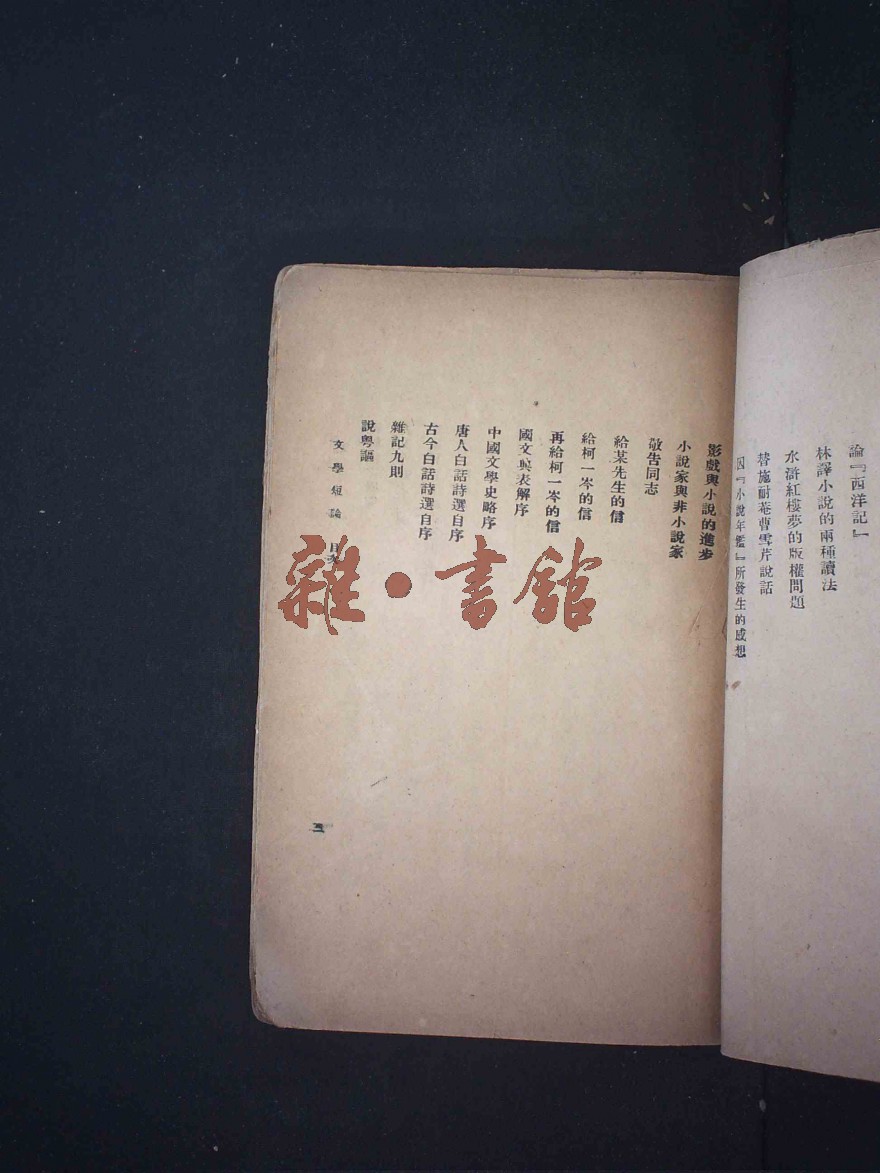 論『西洋記』
林譯小說的兩種讀法
水滸紅樓夢的版權問題
替施耐菴曹雪芹說話
因『小說年鑑』所發生的感想
影戲與小說的進步
小說家與非小說家
敬告同志
給某先生的信
給柯一岑的信
再給柯一岑的信
國文與表解序
中國文學史略序
唐人白話詩選自序
古今白話詩選自序
雜記九則
說粵謳
文學短論 目次
三
雜·書館